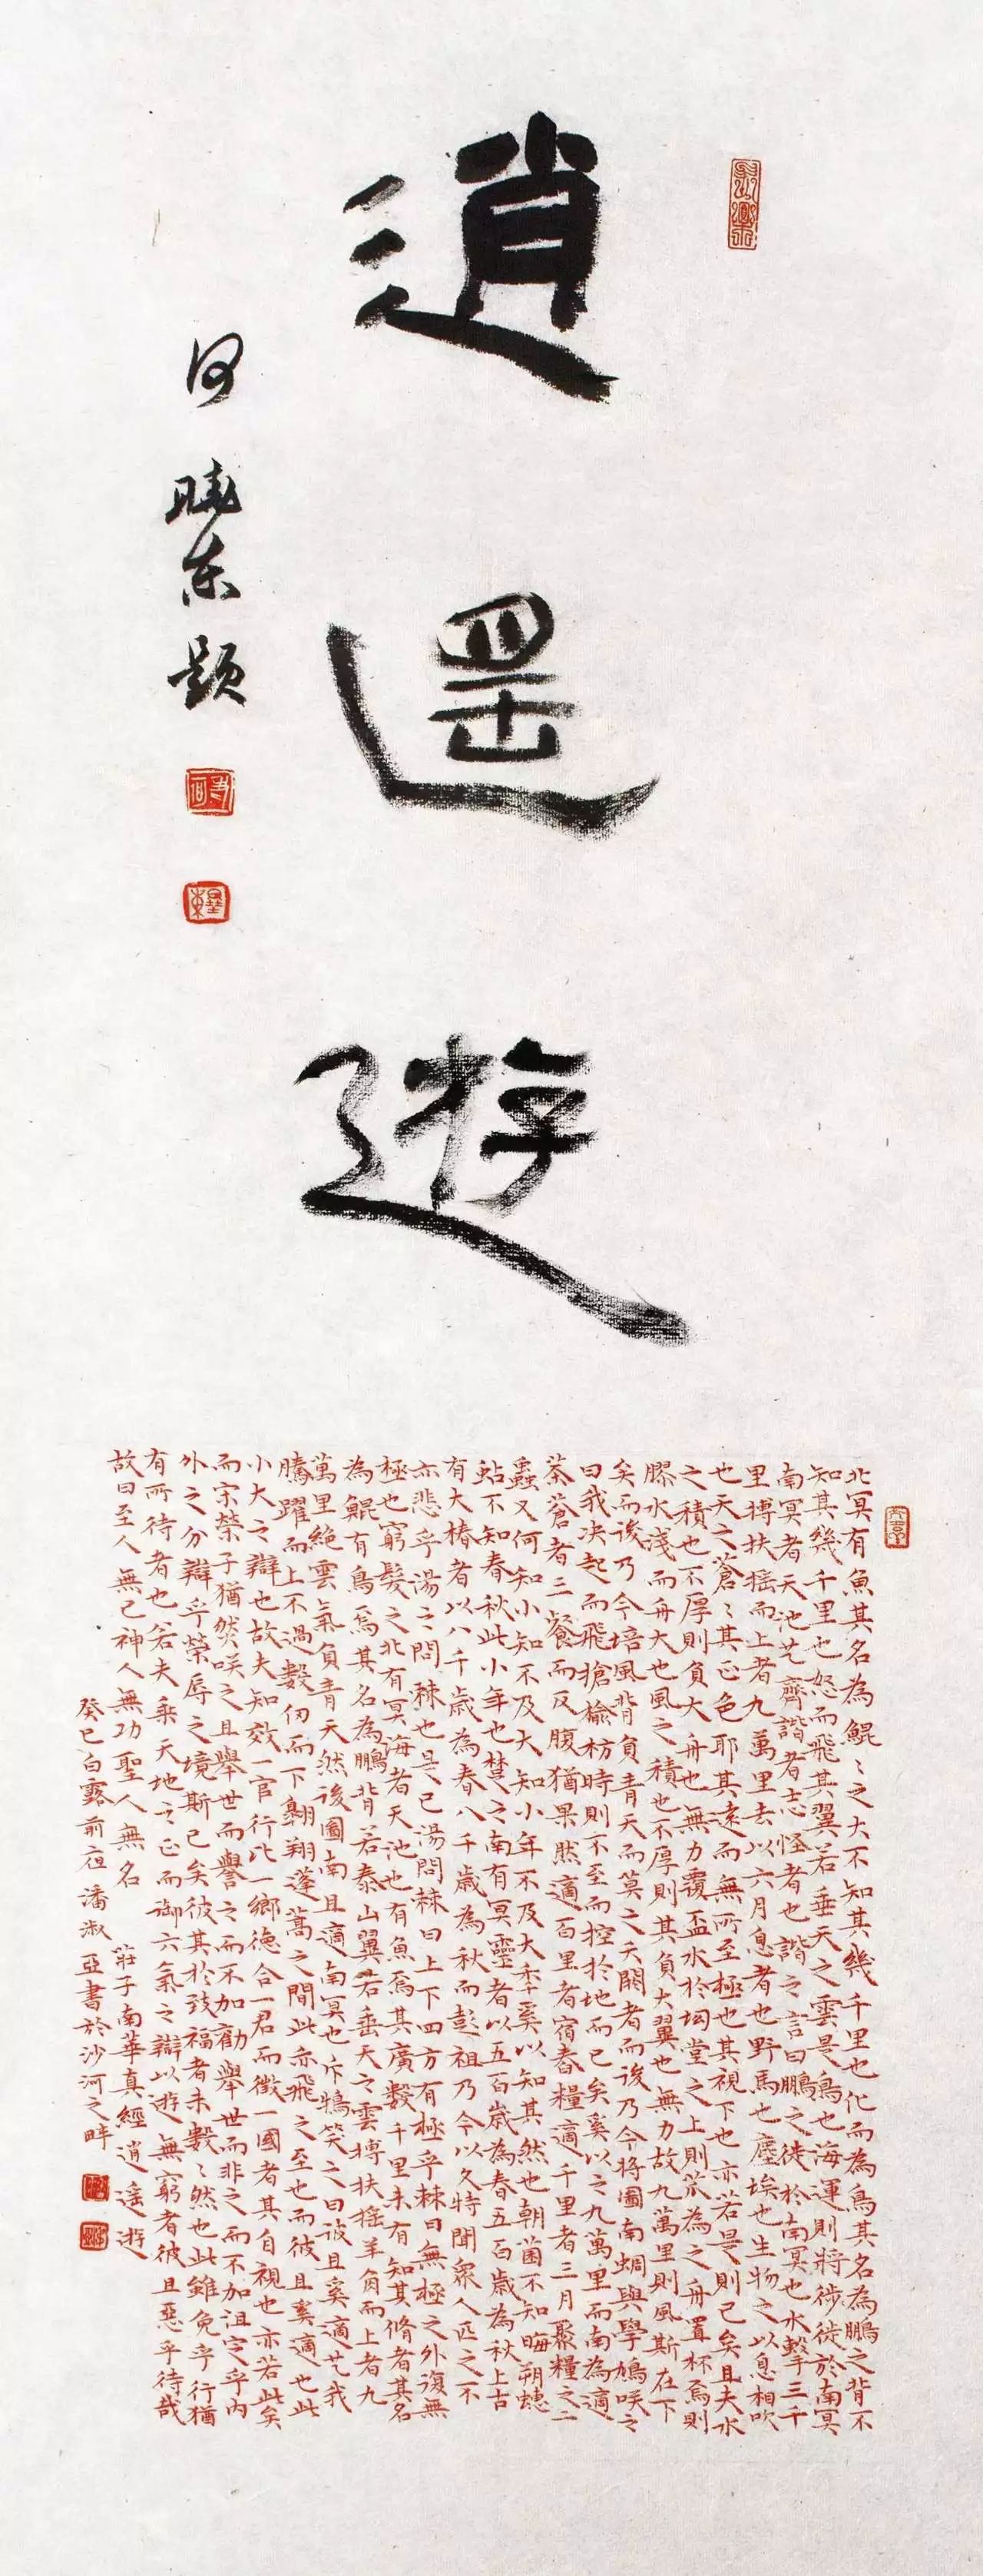 逍遥遊
何曉東題
北冥有魚其名為鯤〻之大不知其幾千里也化而為鳥其名為鵬之背不
知其幾千里也怒而飛其翼若垂天之雲是鳥也海運則將徙於南冥
南冥者天池也齊諧者志怪者也諧之言曰鵬之徙於南冥也水擊三千
里搏扶摇而上者九萬里去以六月息者也野馬也塵埃也生物之以息相吹
也天之蒼〻其正色耶其遠而無所至極也其視下也亦若是則已矣且夫水
之積也不厚則負大舟也無力覆盃水於坳堂之上則芥為之舟置杯焉則
膠水淺而舟大也風之積也不厚則其負大翼也無力故九萬里則風斯在下
矣而後乃今培風背負青天而莫之夭閼者而後乃今將圖南蜩與學鳩咲之
曰我决起而飛搶榆枋時則不至而控於地而已矣奚以之九萬里而南為適
莽蒼者三餐而反腹猶果然適百里者宿舂糧適千里者三月聚糧之二
蟲又何知小知不及大知小年不及大年奚以知其然也朝菌不知晦朔蟪
蛄不知春秋此小年也楚之南有冥靈者以五百歲為春五百歲為秋上古
有大椿者以八千歲為春八千歲為秋而彭祖乃今以久特聞衆人匹之不
亦悲乎湯之問棘也是已湯問棘曰上下四方有極乎棘曰無極之外復無
極也窮髮之北有冥海者天池也有魚焉其廣數千里未有知其脩者其名
為鯤有鳥焉其名為鵬背若泰山翼若垂天之雲搏扶摇羊角而上者九
萬里絶雲氣負青天然後圖南且適南冥也斥鴳笑之曰彼且奚適也我
騰躍而上不過數仞而下翱翔蓬蒿之間此亦飛之至也而彼且奚適也此
小大之辯也故夫知效一官行比一鄉德合一君而徵一國者其自視也亦若此矣
而宋榮子猶然咲之且舉世而譽之而不加勸舉世而非之而不加沮定乎内
外之分辯乎榮辱之境斯已矣彼其於致福者未數〻然也此雖免乎行猶
有所待者也若夫乘天地之正而御六氣之辯以遊無窮者彼且惡乎待哉
故曰至人無己神人無功聖人無名 莊子南華真經逍遥遊
癸巳白露前夜潘淑亞書於沙河之畔